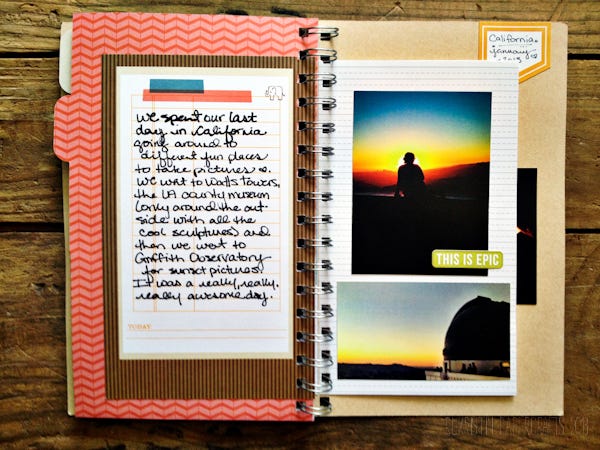 we spent our last
day in California
going around to
different fun places
to take pictures
we went to Watts Towers,
the LA county museum
(only around the out-
side with all the
cool sculptures) and
then we went to
Griffith Observatory
for sunset pictures.
It was a really, really,
really awesome day.
TODAY
California.
january
2013
THIS IS EPIC